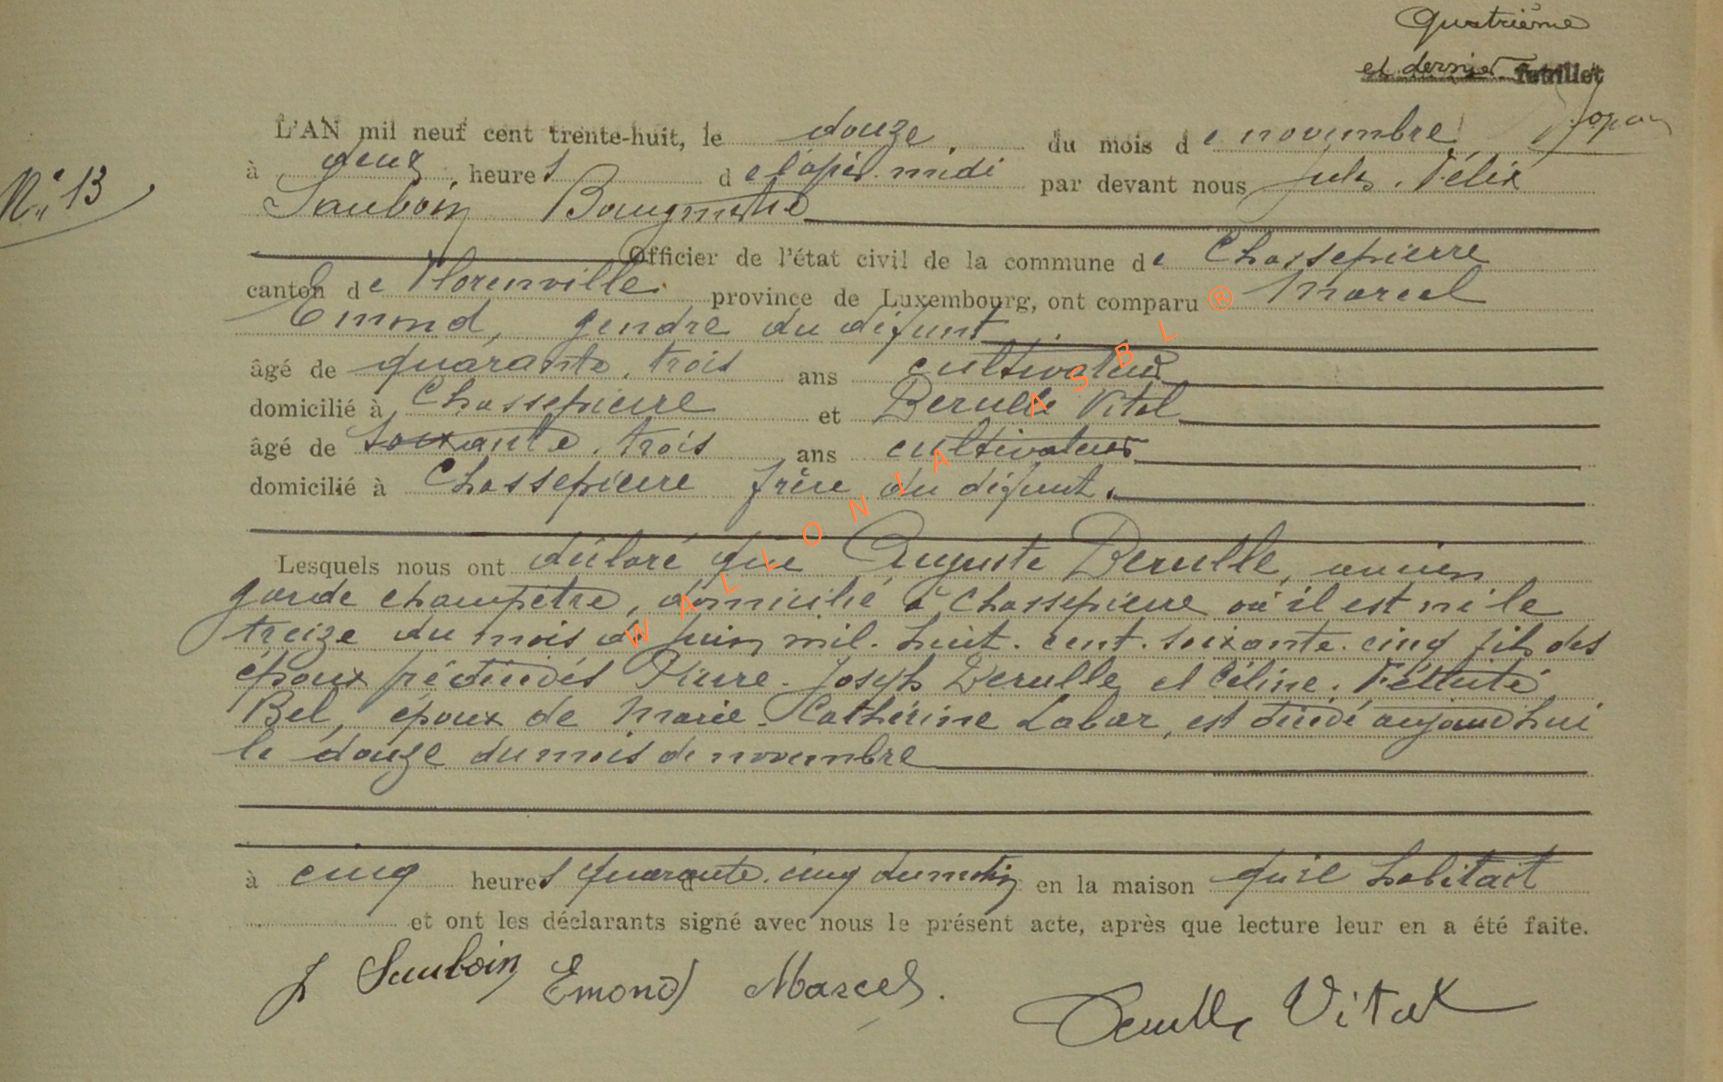 Quatrième
et dernier feuillet
N° 13
L'AN mil neuf cent trente-huit, le douze du mois de novembre
à deux heures de l'après-midi par devant nous Jules. Félix
Sauboin Bourgmestre
Officier de l'état civil de la commune de Chassepierre
canton de Florenville province de Luxembourg, ont comparu Marcel
Emond, gendre du défunt
âgé de quarante. trois ans cultivateur
domicilié à Chassepierre et Derulle Vital
âgé de soixante. trois ans cultivateur
domicilié à Chassepierre frère du défunt.
Lesquels nous ont déclaré que Auguste Derulle, ancien
garde champêtre, domicilié à Chassepierre où il est né le
treize du mois de juin mil. huit. cent. soixante. cinq fils des
époux prédécédés Pierre. Joseph Derulle et Céline. Félicité
Bel, époux de Marie. Catherine Labar, est décédé aujourd'hui
le douze du mois de novembre
à cinq heures quarante. cinq du matin en la maison qu'il habitait
et ont les déclarants signé avec nous le présent acte, après que lecture leur en a été faite.
J Sauboin Emond Marcel. Derulle Vital
WALLONIA ASBL ®